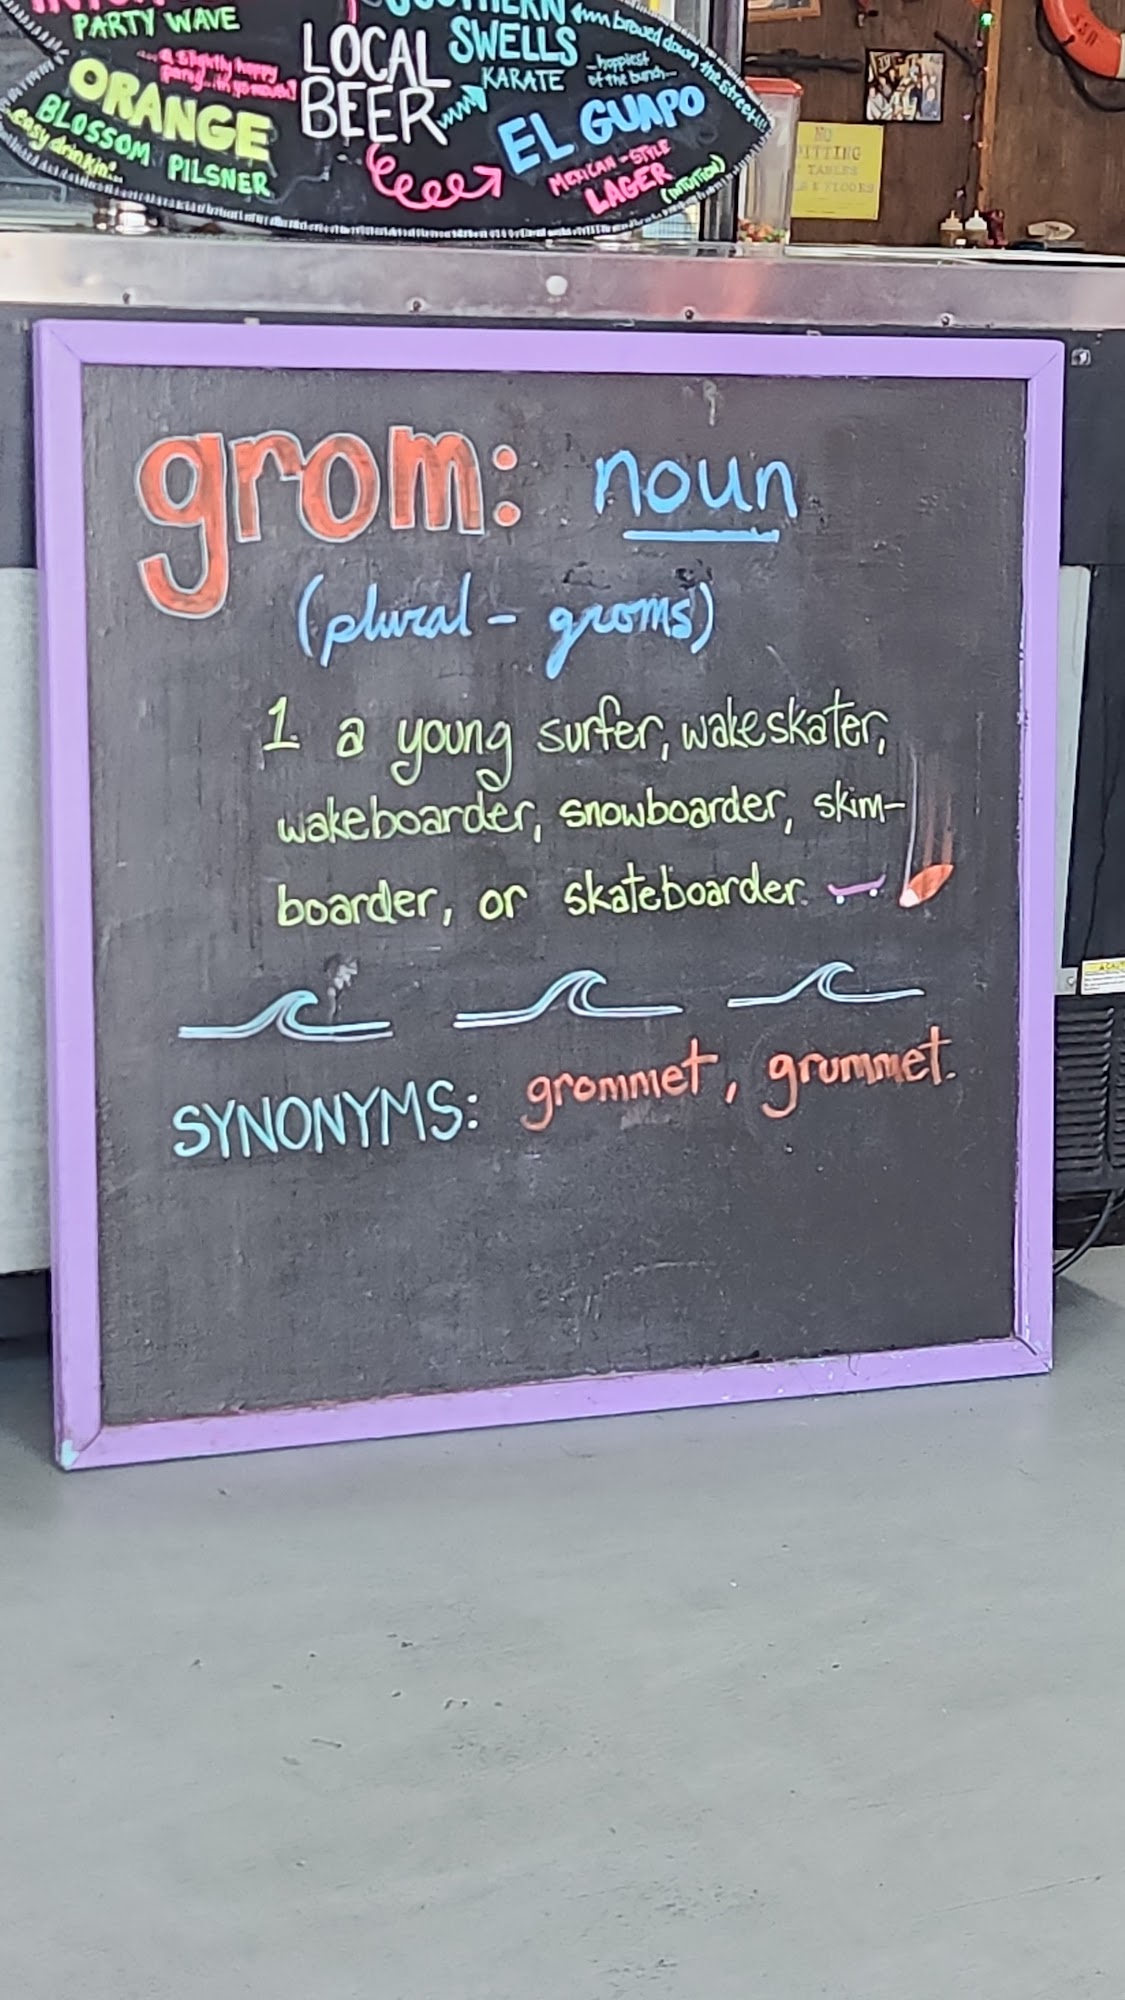 PARTY WAVE
...a slightly happy
party...in yo mouth!
ORANGE
BLOSSOM PILSNER
easy drinkin'...
LOCAL
BEER
SOUTHERN
SWELLS
KARATE
brewed down the street!!!
...hoppiest
of the bunch...
EL GUAPO
MEXICAN-STYLE
LAGER
(INTUITION)
NO
TABLES
& FLOORS
grom: noun
(plural - groms)
1. a young surfer, wakeskater,
wakeboarder, snowboarder, skim-
boarder, or skateboarder.
SYNONYMS: grommet, grummet.